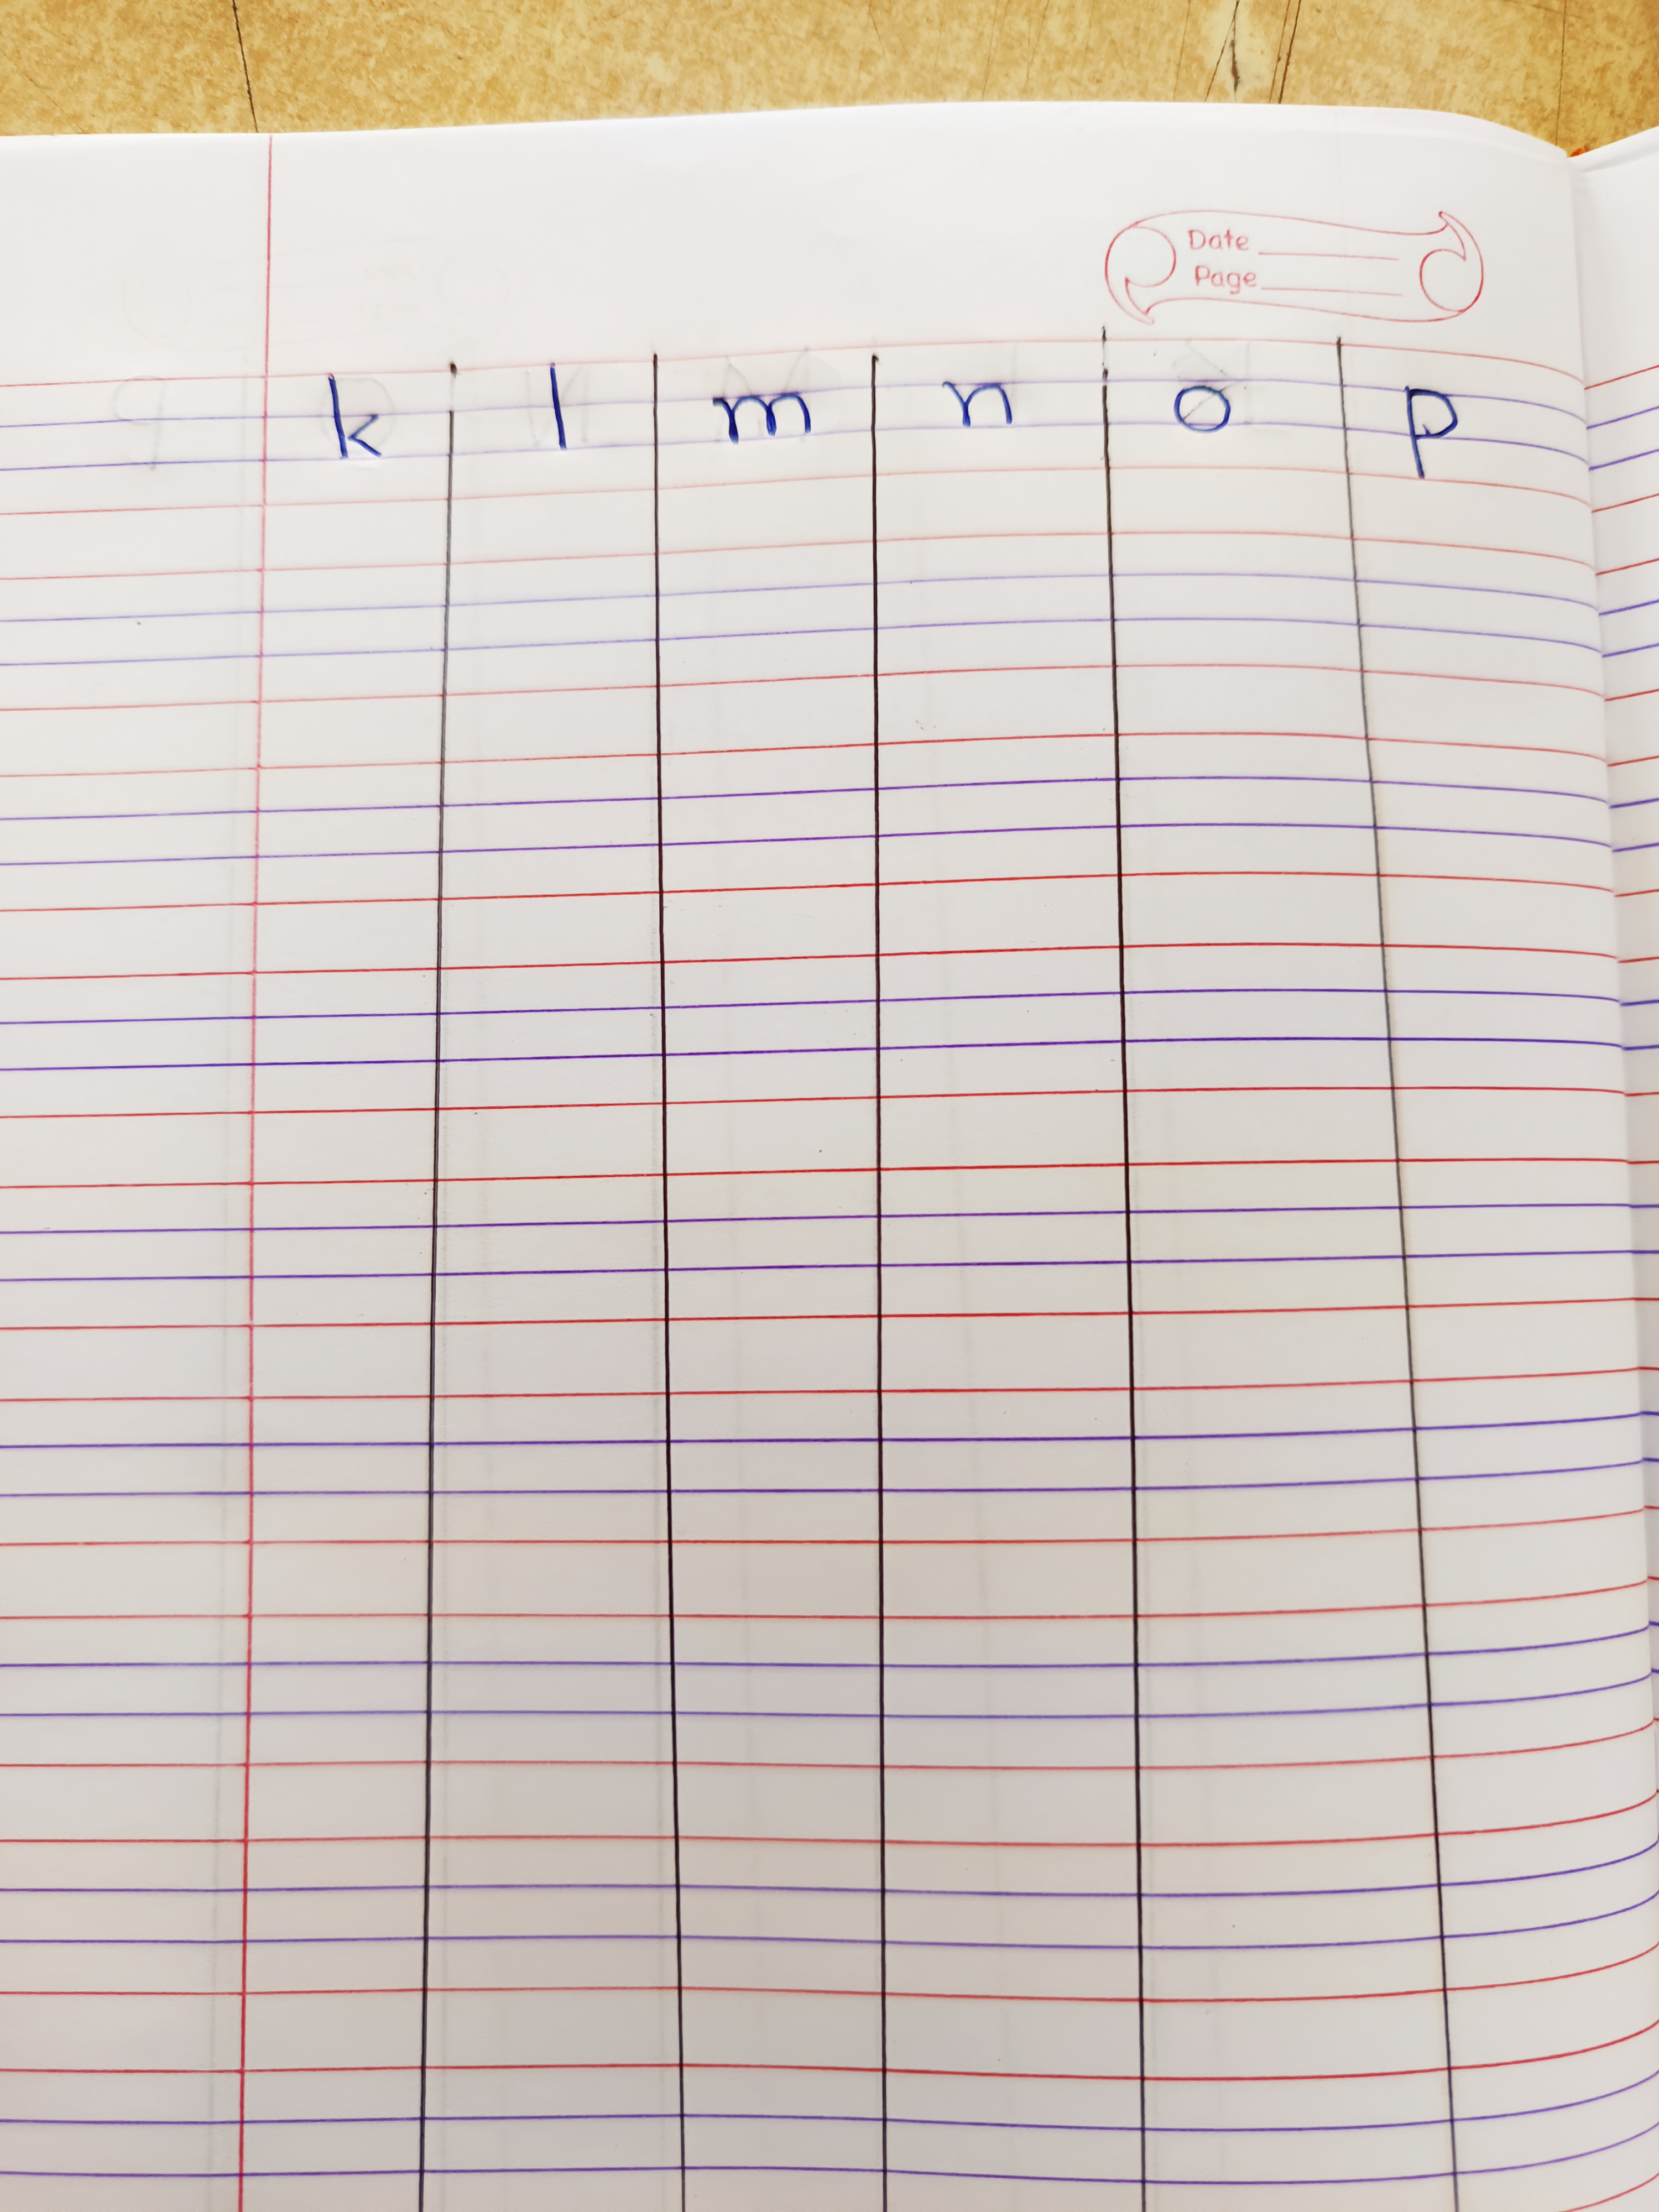 Date
Page
k l m n o p